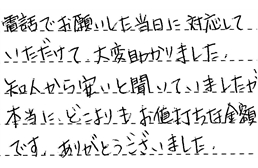 電話でお願いした当日に対応して
いただけて、大変助かりました。
知人から安いと聞いていましたが
本当に、どこよりもお値打ちな金額
です。ありがとうございました。